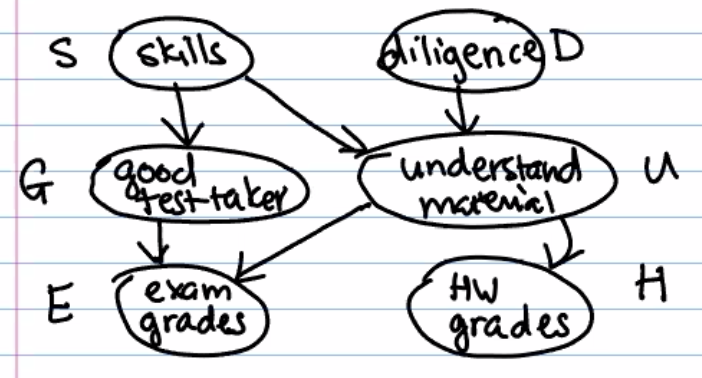 S skills diligence D
G good test-taker understand material U
E exam grades HW grades H